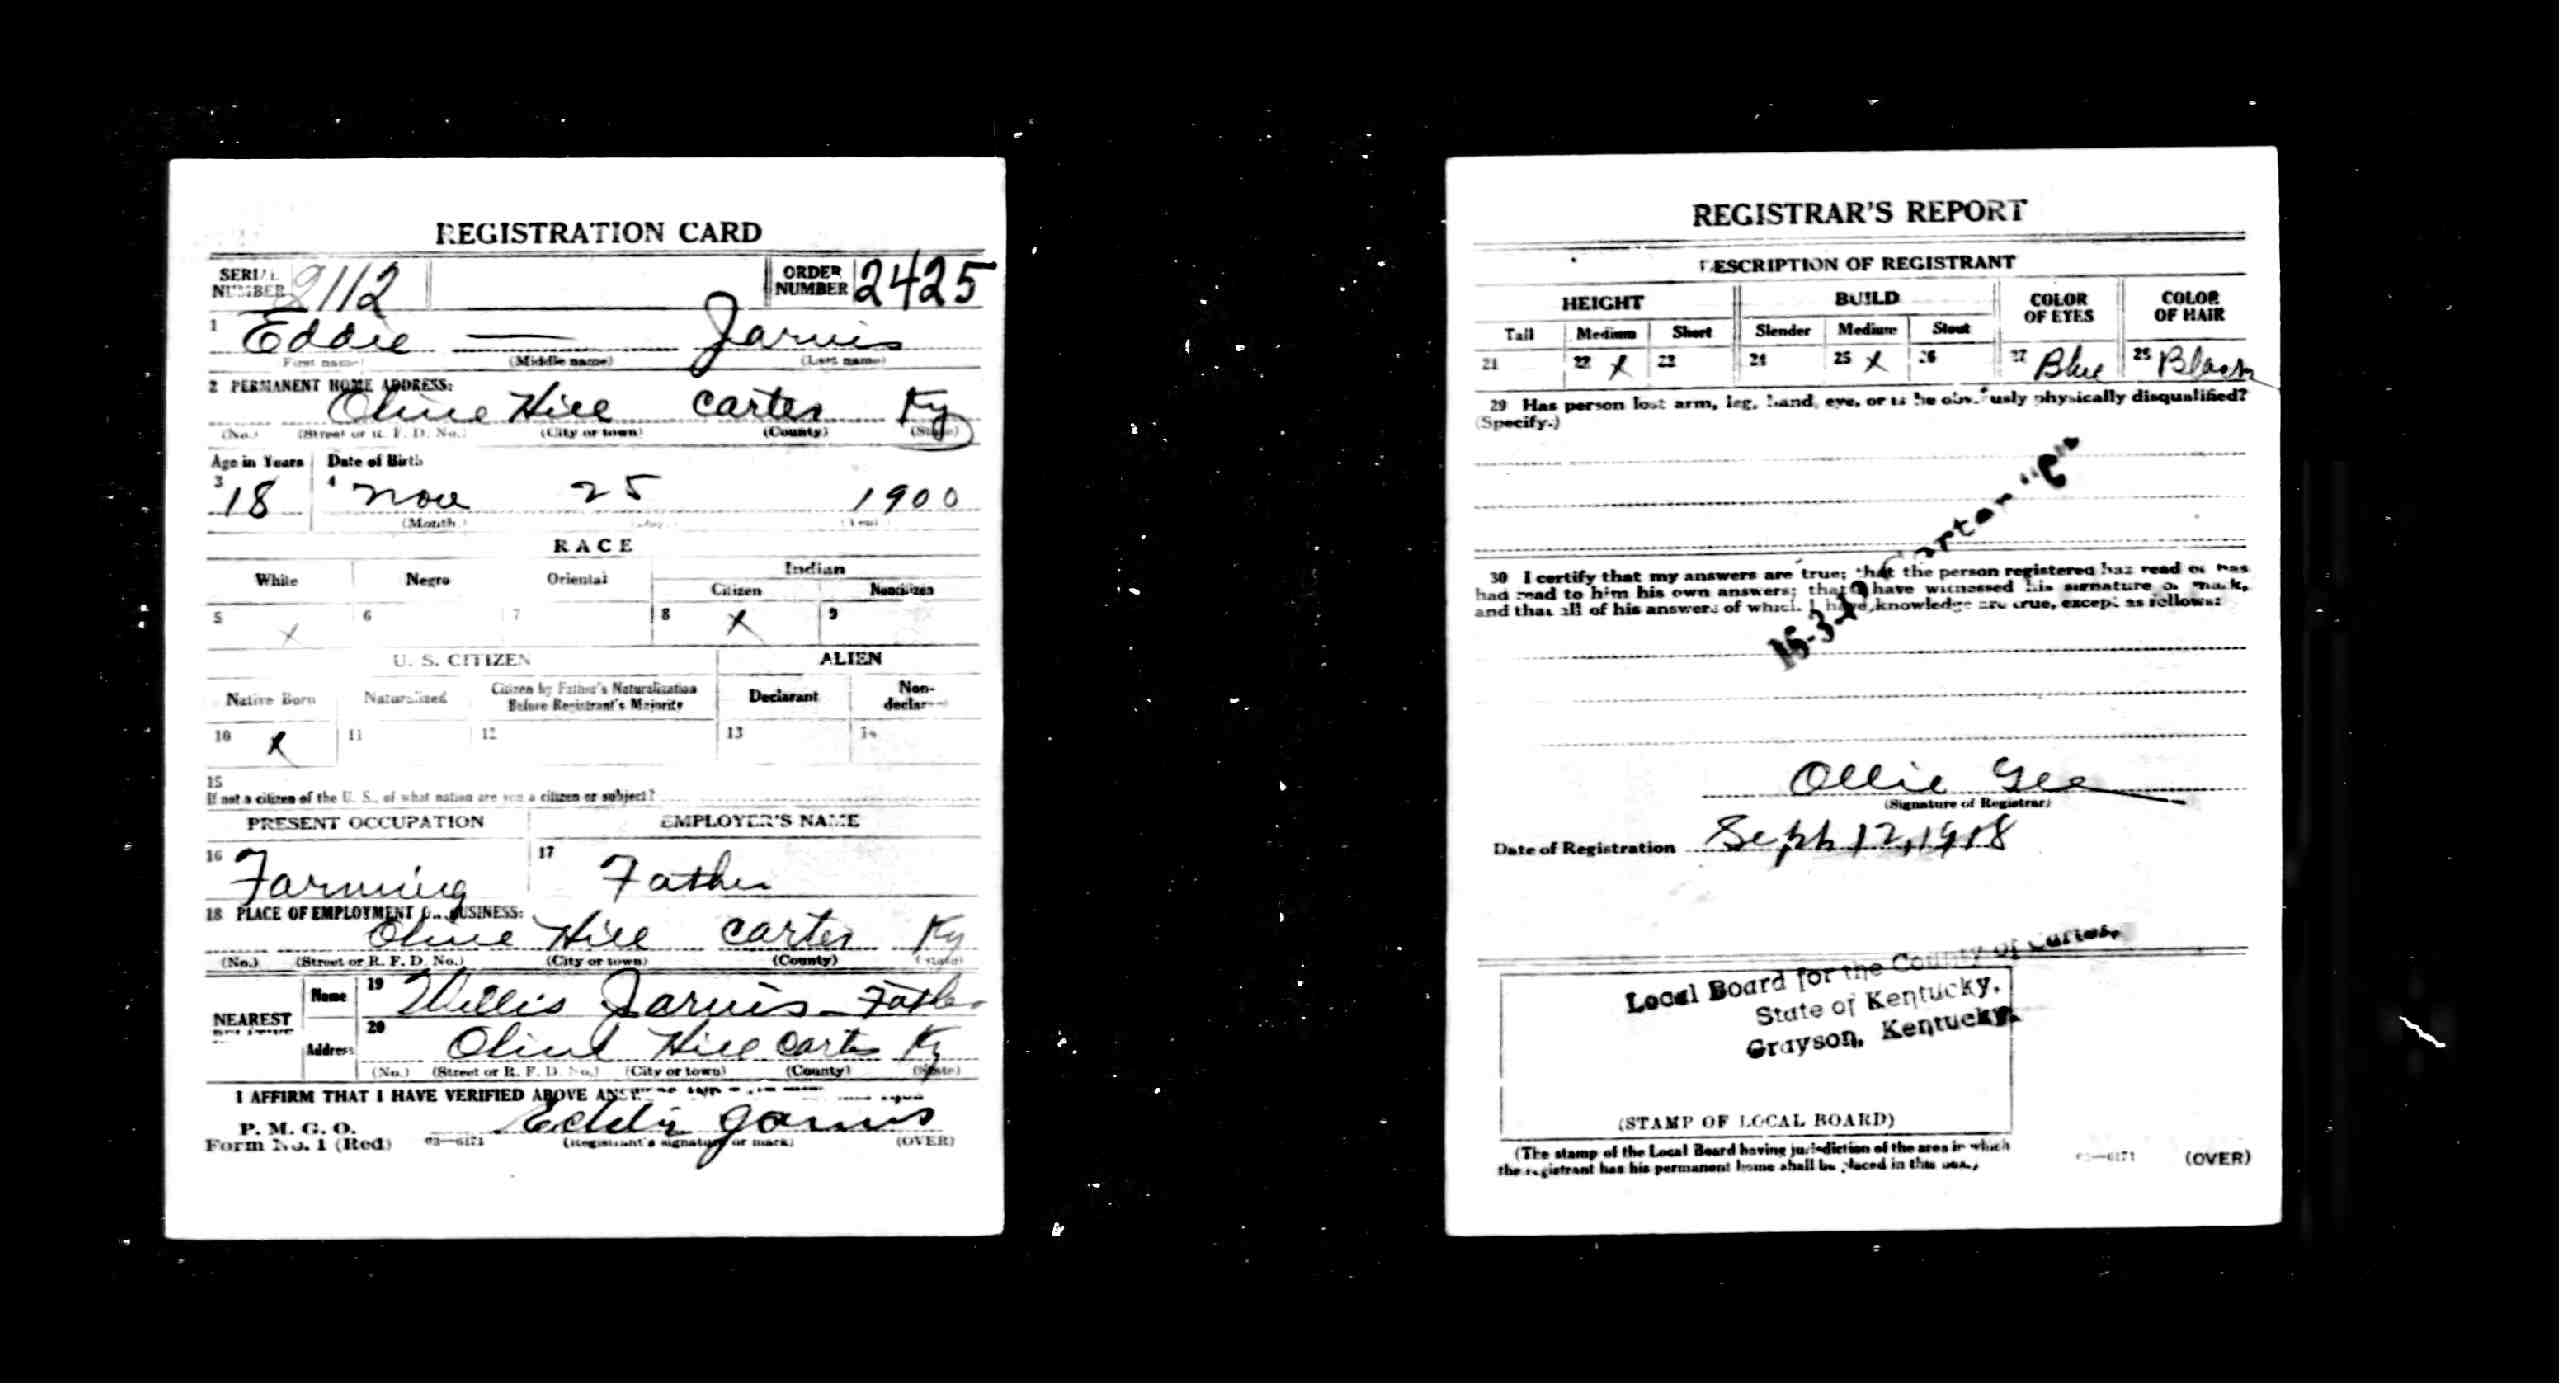 REGISTRATION CARD
SERIAL NUMBER 2112 ORDER NUMBER 2425
1 Eddie — Jarvis
(First name) (Middle name) (Last name)
2 PERMANENT HOME ADDRESS:
Olive Hill Carter Ky
(No.) (Street or R. F. D. No.) (City or town) (County) (State)
Age in Years Date of Birth
3 18 4 Nov 25 1900
(Month) (Day) (Year)
RACE
White Negro Oriental Indian
Citizen Noncitizen
5 X 6 7 8 X 9
U. S. CITIZEN ALIEN
Native Born Naturalized Citizen by Father's Naturalization Before Registrant's Majority Declarant Non-declarant
10 X 11 12 13 14
15
If not a citizen of the U. S., of what nation are you a citizen or subject?
PRESENT OCCUPATION EMPLOYER'S NAME
16 Farming 17 Father
18 PLACE OF EMPLOYMENT OR BUSINESS:
Olive Hill Carter Ky
(No.) (Street or R. F. D. No.) (City or town) (County) (State)
NEAREST RELATIVE Name 19 Willis Jarvis - Father
Address 20 Olive Hill Carter Ky
(No.) (Street or R. F. D. No.) (City or town) (County) (State)
I AFFIRM THAT I HAVE VERIFIED ABOVE ANSWERS AND
P. M. G. O.
Form No. 1 (Red) 03—6171 Eddie Jarvis
(Registrant's signature or mark) (OVER)
REGISTRAR'S REPORT
DESCRIPTION OF REGISTRANT
HEIGHT BUILD COLOR OF EYES COLOR OF HAIR
Tall Medium Short Slender Medium Stout
21 22 X 23 24 25 X 26 27 Blue 28 Black
29 Has person lost arm, leg, hand, eye, or is he obviously physically disqualified?
(Specify.)
16-3-19 Carter "C"
30 I certify that my answers are true; that the person registered has read or has
had read to him his own answers; that I have witnessed his signature or mark,
and that all of his answers of which I have knowledge are true, except as follows:
Ollie Gee
(Signature of Registrar)
Date of Registration Sept 12, 1918
Local Board for the County of Carter,
State of Kentucky,
Grayson, Kentucky.
(STAMP OF LOCAL BOARD)
(The stamp of the Local Board having jurisdiction of the area in which
the registrant has his permanent home shall be placed in this box.)
03—6171 (OVER)